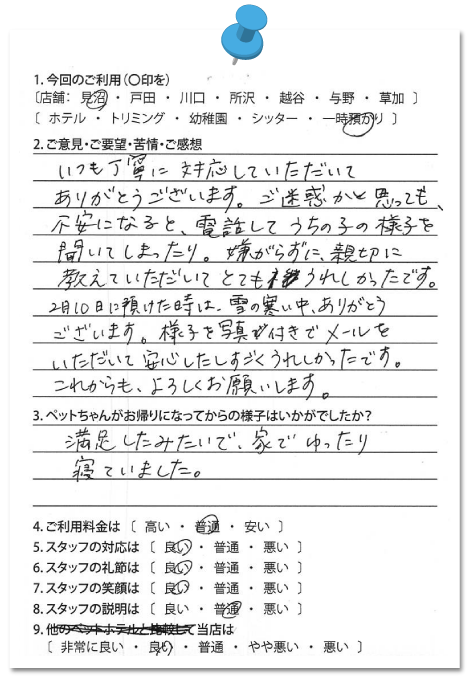 1. 今回のご利用(〇印を)
〔店舗: 見沼 ・ 戸田 ・ 川口 ・ 所沢 ・ 越谷 ・ 与野 ・ 草加 〕
〔 ホテル ・ トリミング ・ 幼稚園 ・ シッター ・ 一時預かり 〕
2. ご意見・ご要望・苦情・ご感想
いつも丁寧に対応していただいて
ありがとうございます。ご迷惑かと思っても、
不安になると、電話してうちの子の様子を
聞いてしまったり。嫌がらずに、親切に
教えていただいてとてもうれしかったです。
2月10日に預けた時は、雪の寒い中、ありがとう
ございます。様子を写真付きでメールを
いただいて安心したしすごくうれしかったです。
これからも、よろしくお願いします。
3. ペットちゃんがお帰りになってからの様子はいかがでしたか?
満足したみたいで、家でゆったり
寝ていました。
4. ご利用料金は 〔 高い ・ 普通 ・ 安い 〕
5. スタッフの対応は 〔 良い ・ 普通 ・ 悪い 〕
6. スタッフの礼節は 〔 良い ・ 普通 ・ 悪い 〕
7. スタッフの笑顔は 〔 良い ・ 普通 ・ 悪い 〕
8. スタッフの説明は 〔 良い ・ 普通 ・ 悪い 〕
9. 他のペットホテルと比較して当店は
〔 非常に良い ・ 良い ・ 普通 ・ やや悪い ・ 悪い 〕